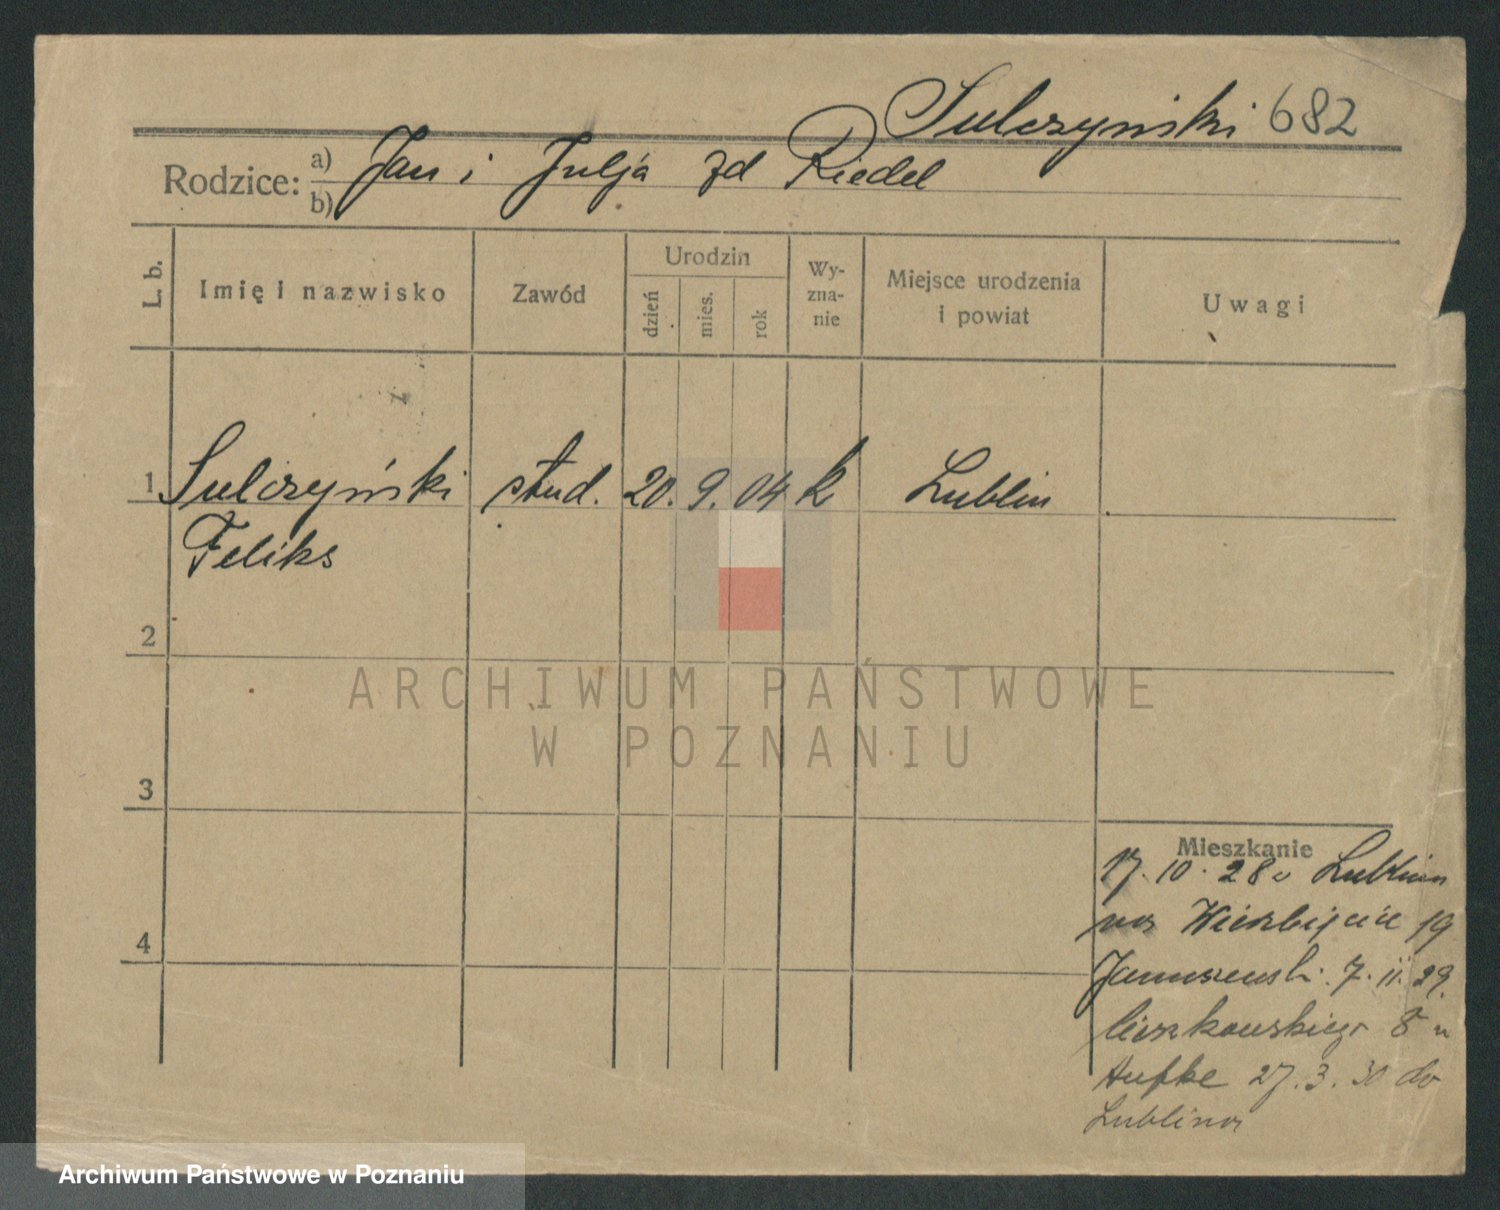 Sulczyński 682
Rodzice: a) Jan i Julja zd Riedel
b)
L. b. Imię i nazwisko Zawód Urodzin dzień mies. rok Wy-zna-nie Miejsce urodzenia i powiat Uwagi
1 Sulczyński stud. 20. 9. 04 k Lublin
Feliks
2
3
4
Mieszkanie
17. 10. 28 Lublin
Wierzbięcice 19
7. 11. 29.
8
27. 3. 30 do
Lublina
ARCHIWUM PAŃSTWOWE
W POZNANIU
Archiwum Państwowe w Poznaniu